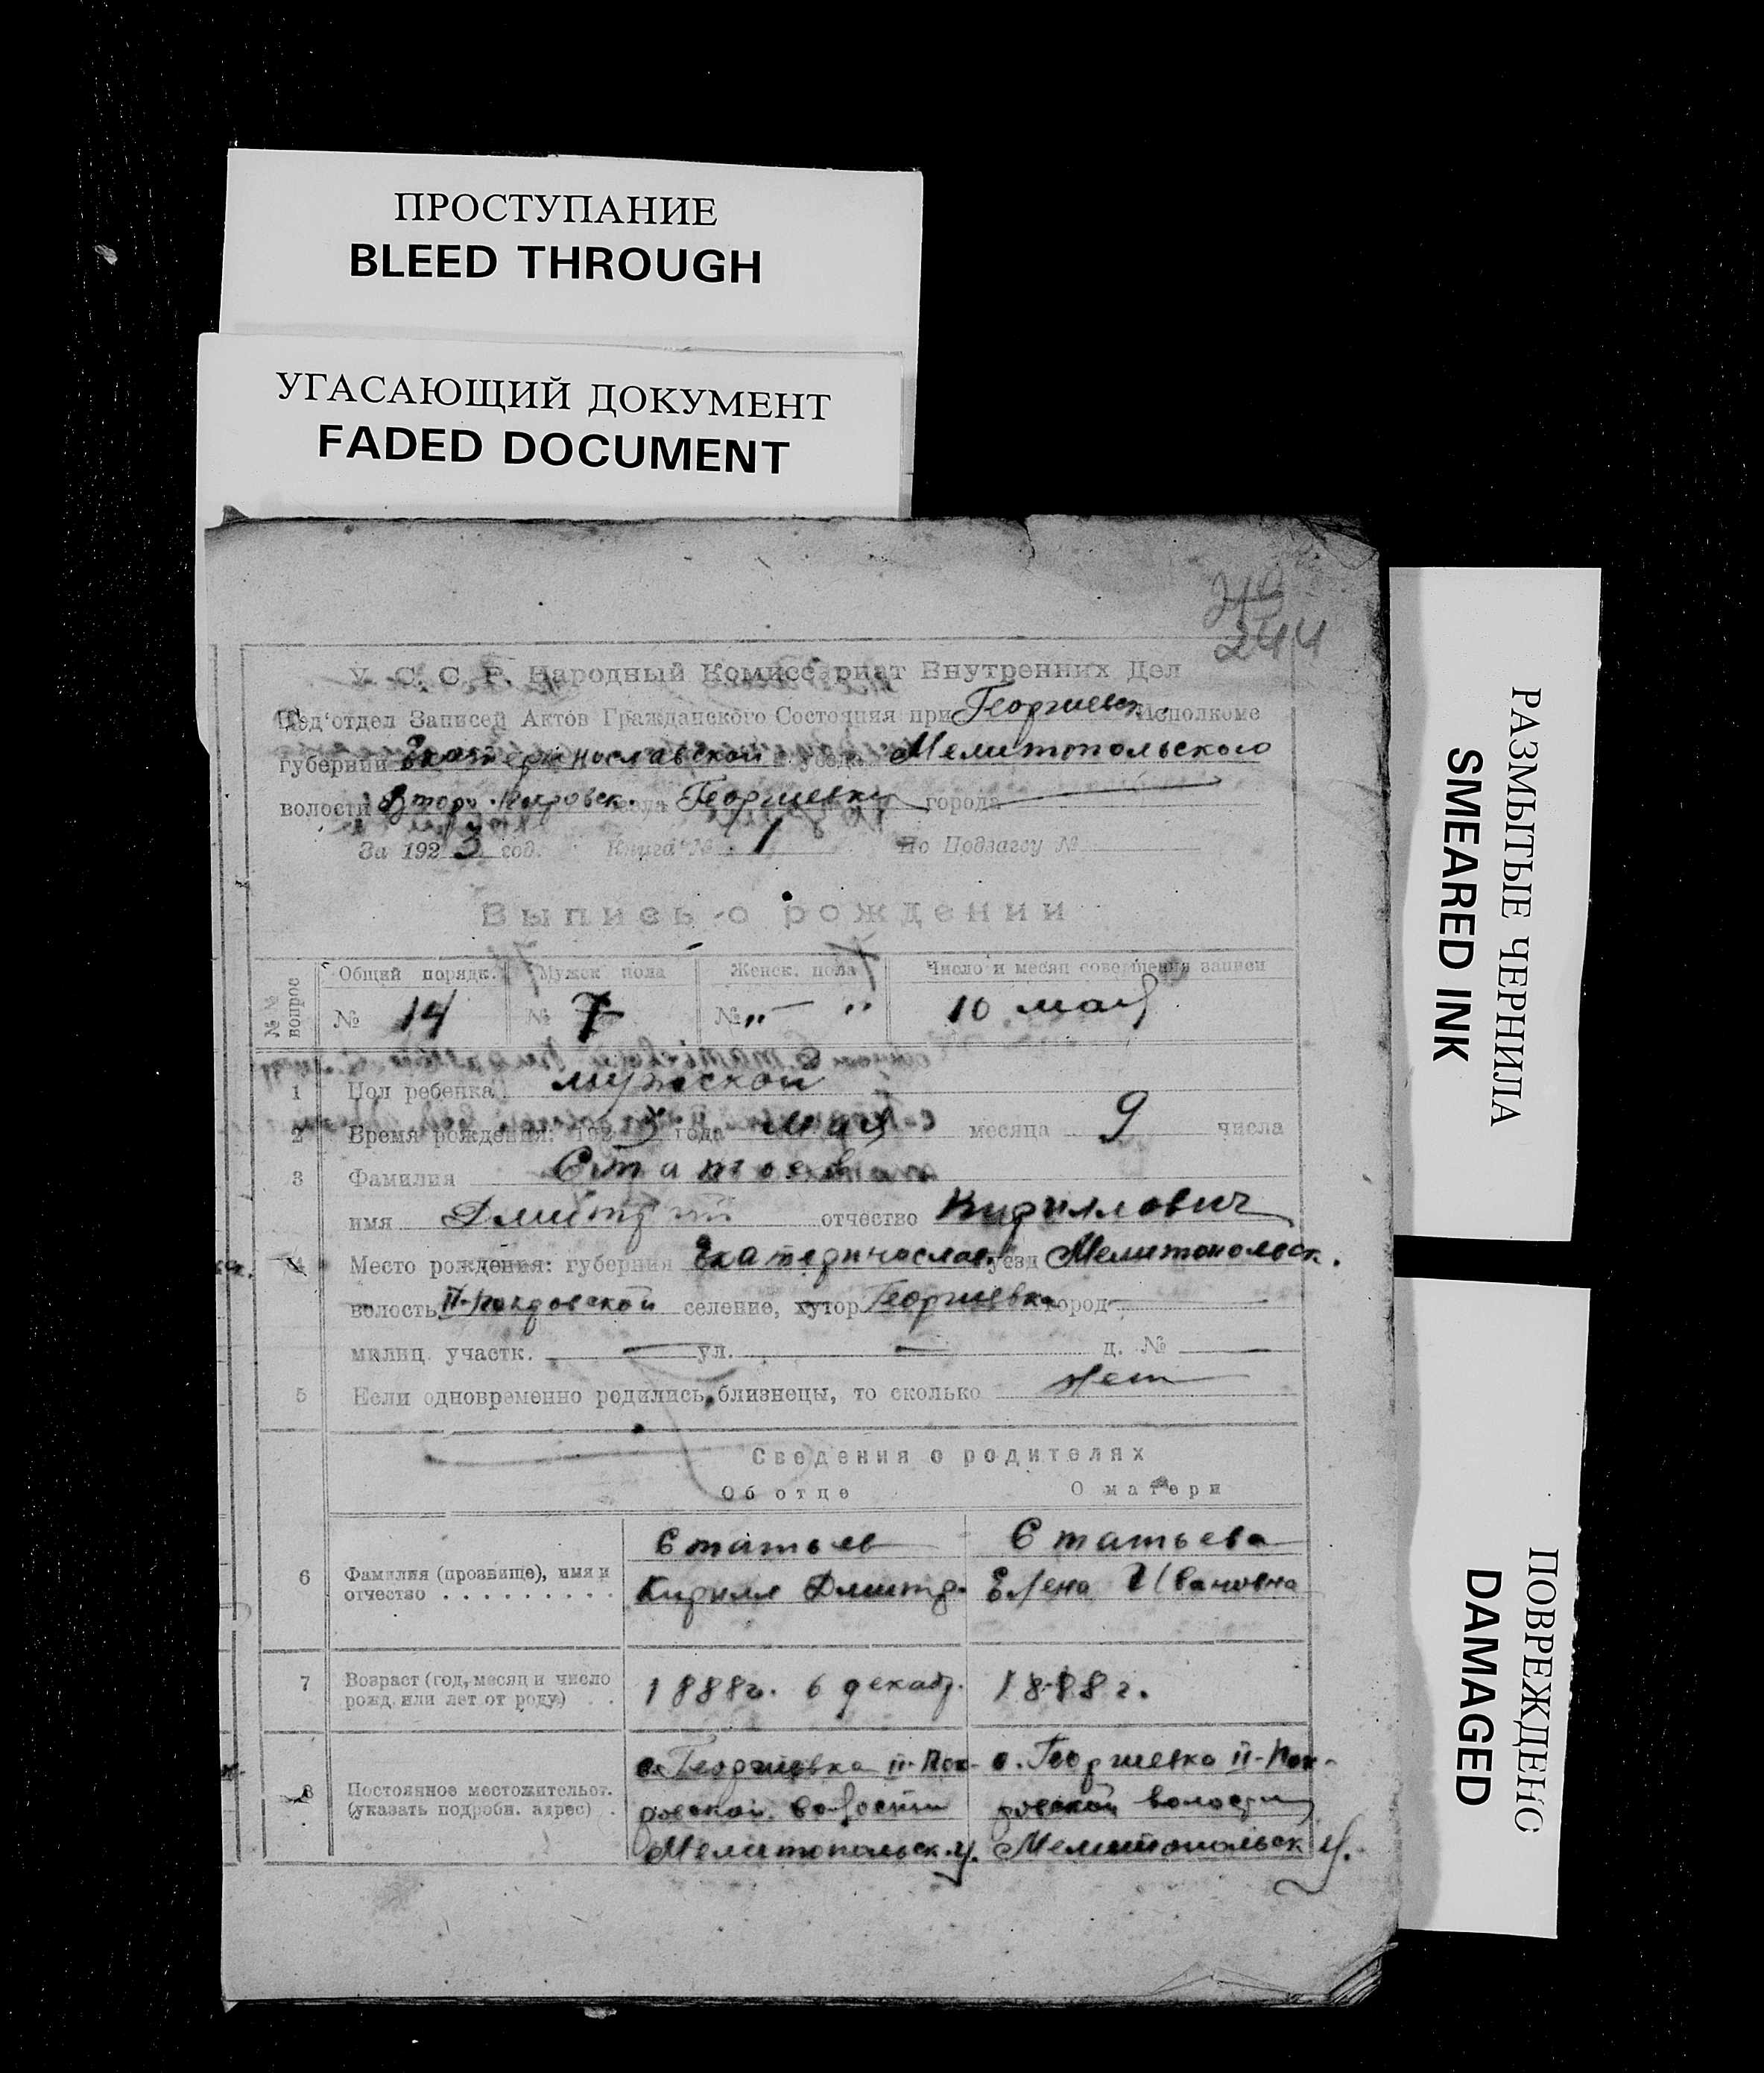 ПРОСТУПАНИЕ
BLEED THROUGH
УГАСАЮЩИЙ ДОКУМЕНТ
FADED DOCUMENT
244
У. С. С. Р. Народный Комиссариат Внутренних Дел
Под‘отдел Записей Актов Гражданского Состояния при Георгиевск. Исполкоме
губернии Екатеринославской уезда Мелитопольского
волости Втор. Покровск. села Георгиевки города
За 1923 год. Книга № 1 По Подзагсу №
Выпись о рождении
№№ вопрос
Общий порядк. Мужск пола Женск. пола Число и месяц совершения записи
№ 14 № 7 № „ — “ 10 мая
1 Пол ребенка мужской
2 Время рождения: 1923 года мая месяца 9 числа
3 Фамилия Статьев
имя Дмитрий отчество Кириллович
4 Место рождения: губерния Екатеринослав. уезд Мелитопольск.
волость II-Покровской селение, хутор Георгиевка город
милиц. участк. — ул. — д. № —
5 Если одновременно родились близнецы, то сколько Нет
Сведения о родителях
Об отце О матери
6 Фамилия (прозвище), имя и
отчество . . . . . . . . .
Статьев
Кирилл Дмитр.
Статьева
Елена Ивановна
7 Возраст (год, месяц и число
рожд. или лет от роду) . .
1888г. 6 декабр.
1888 г.
8 Постоянное местожительст.
(указать подробн. адрес) .
с. Георгиевка II-Пок-
ровской волости
Мелитопольск. у.
с. Георгиевка II-Пок-
ровской волости
Мелитопольск у.
РАЗМЫТЫЕ ЧЕРНИЛА
SMEARED INK
ПОВРЕЖДЕНО
DAMAGED